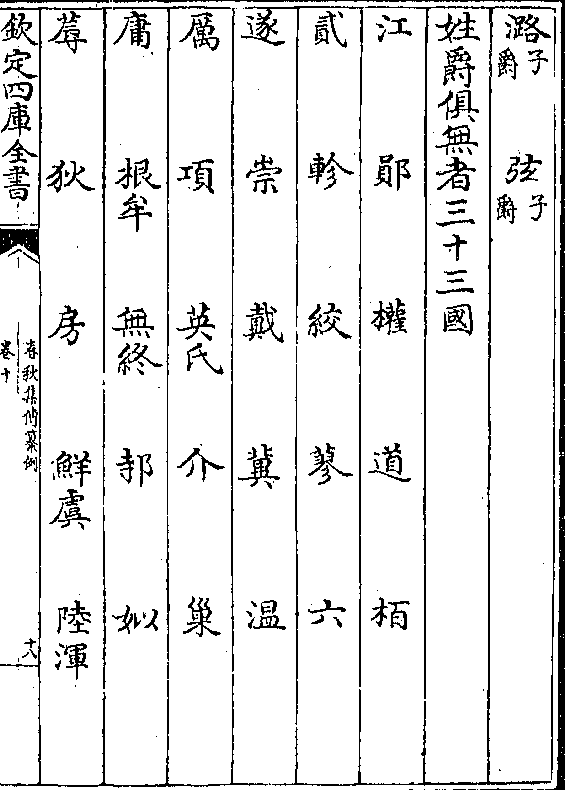 潞子爵 弦子爵
姓爵俱無者三十三國
江 鄖 權 道 栢
貳 軫 絞 蓼 六
遂 崇 戴 冀 温
厲 項 英氏 介 巢
庸 根牟 無終 邿 姒
蓐 狄 房 鮮虞 陸渾
欽定四庫全書
春秋集傳纂例
卷十
十八